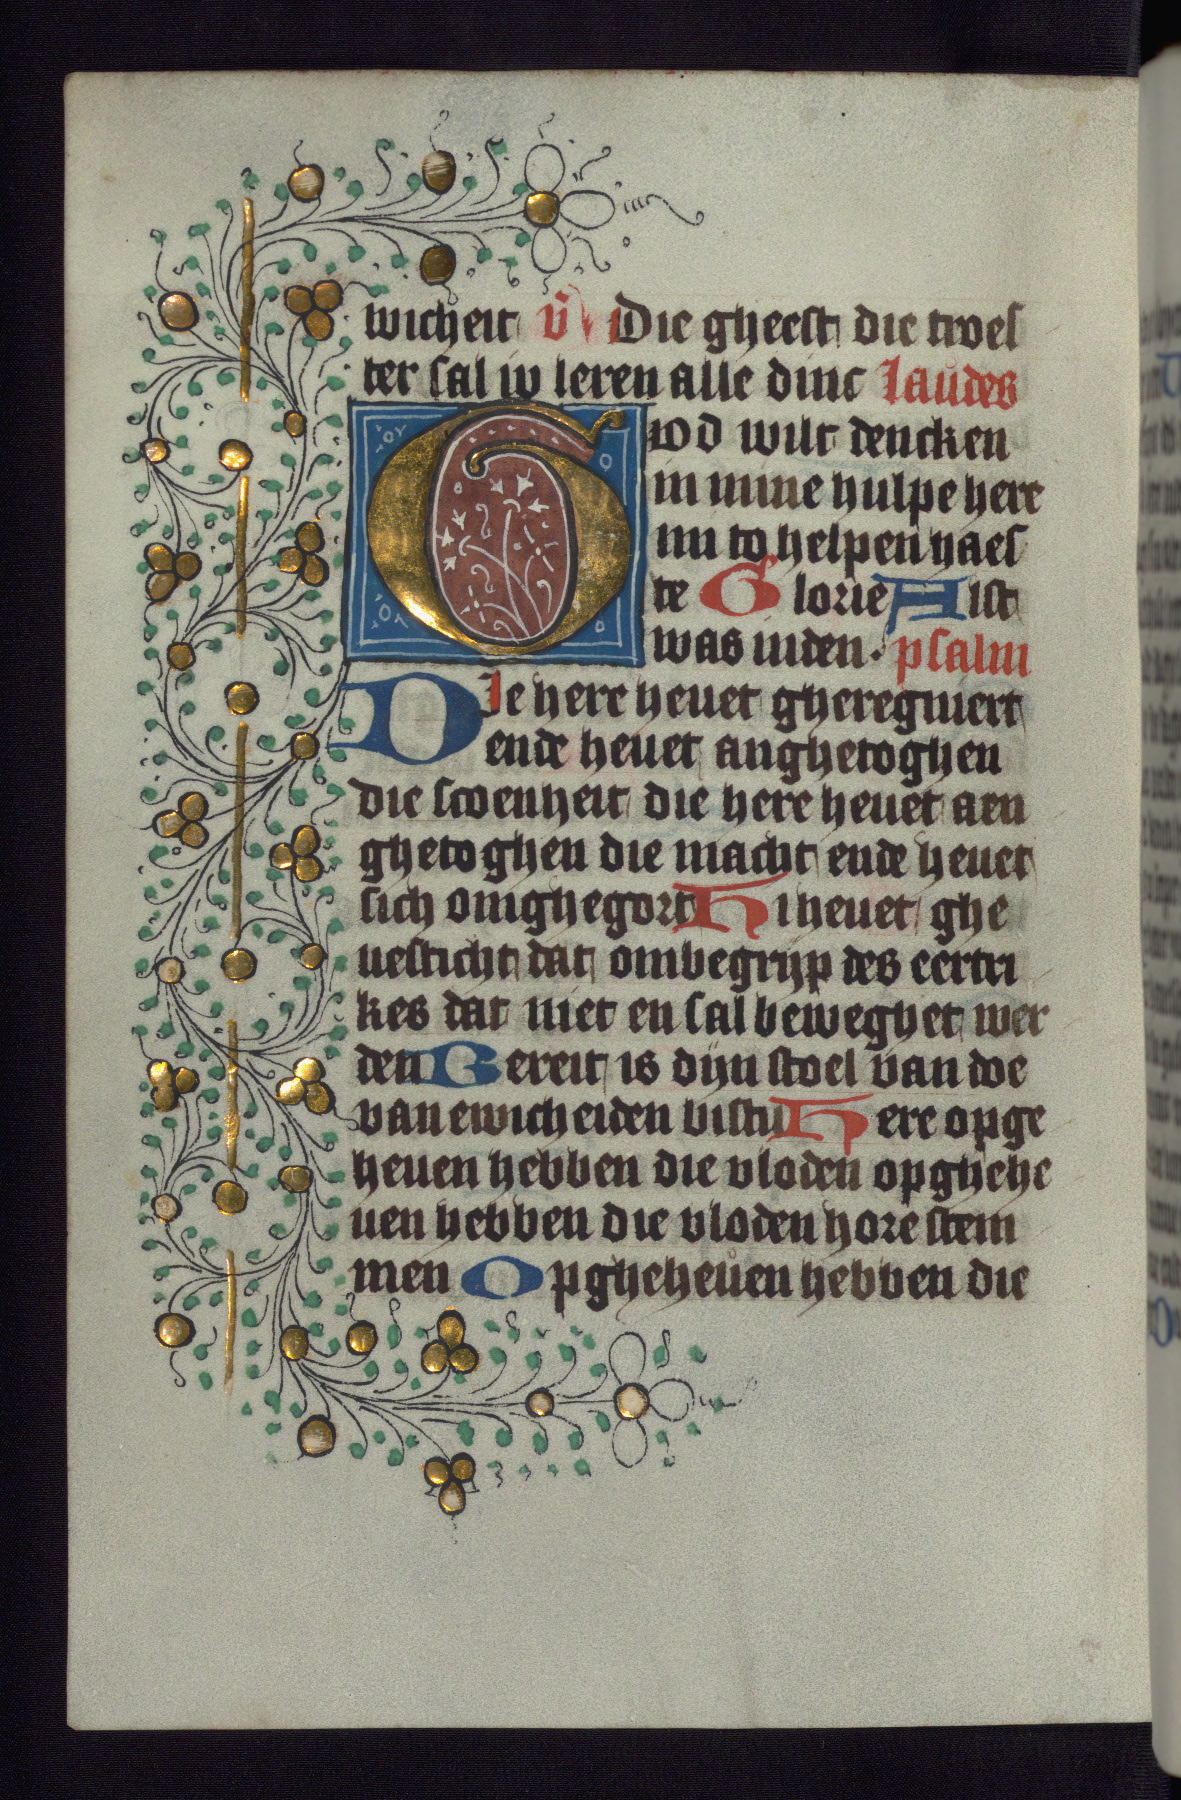 wicheit v̄ Die gheest die troes
ter sal iv leren alle dinc Laudes
God wilt dencken
in mine hulpe here
mi to helpen haes
te Glorie Alst
was inden. psalm
Die here heuet gheregniert
ende heuet anghetoghen
die scoenheit die here heuet aen
ghetoghen die macht ende heuet
sich omghegort Hi heuet ghe
uesticht dat ombegrijp des eertri
kes dat niet en sal beweghet wer
den Bereit is dijn stoel van doe
van ewicheiden bistu Here opge
heuen hebben die vloden opghehe
uen hebben die vloden hore stem
men Opgheheuen hebben die